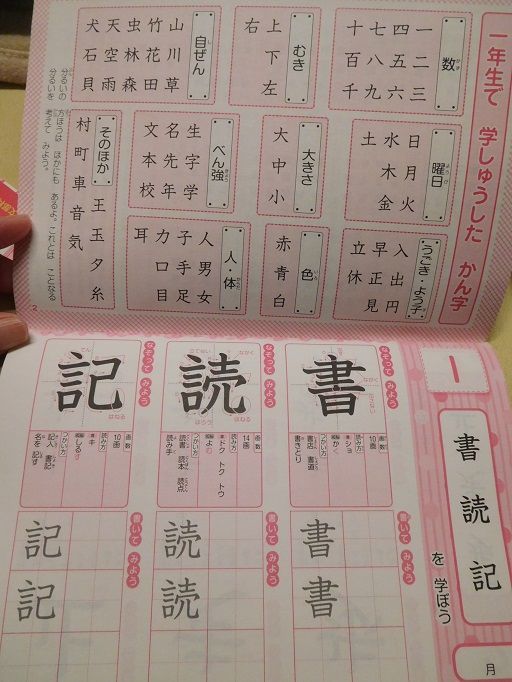 一年生で 学しゅうした かん字
数
かず
一 二 三
四 五 六
七 八 九
十 百 千
むき
上 下 左
右
自ぜん
山 川 草
竹 花 田
虫 林 森
天 空 雨
犬 石 貝
曜日
日 月 火
水 木 金
土
大きさ
大 中 小
べん強
生 字 学
名 先 年
文 本 校
うごき・よう子
入 出 円
早 正 見
立 休
色
いろ
赤 青 白
人・体
人 男 女
子 手 足
力 口 目
耳
そのほか
王 玉 夕 糸
村 町 車 音 気
分るいの 方ほうは ほかにも あるよ。これとは ことなる
分るいを 考えて みよう。
2
1
書 読 記
を 学ぼう
月
なぞって みよう
書
画数
10画
読み方
ショ
かく
つかい方
書店 書道
書きとり
書いて みよう
書
書
なぞって みよう
読
画数
14画
読み方
ドク トク トウ
よむ
つかい方
読書 読本 読点
読み手
書いて みよう
読
読
なぞって みよう
記
画数
10画
読み方
キ
しるす
つかい方
記入 書記
名を 記す
書いて みよう
記
記